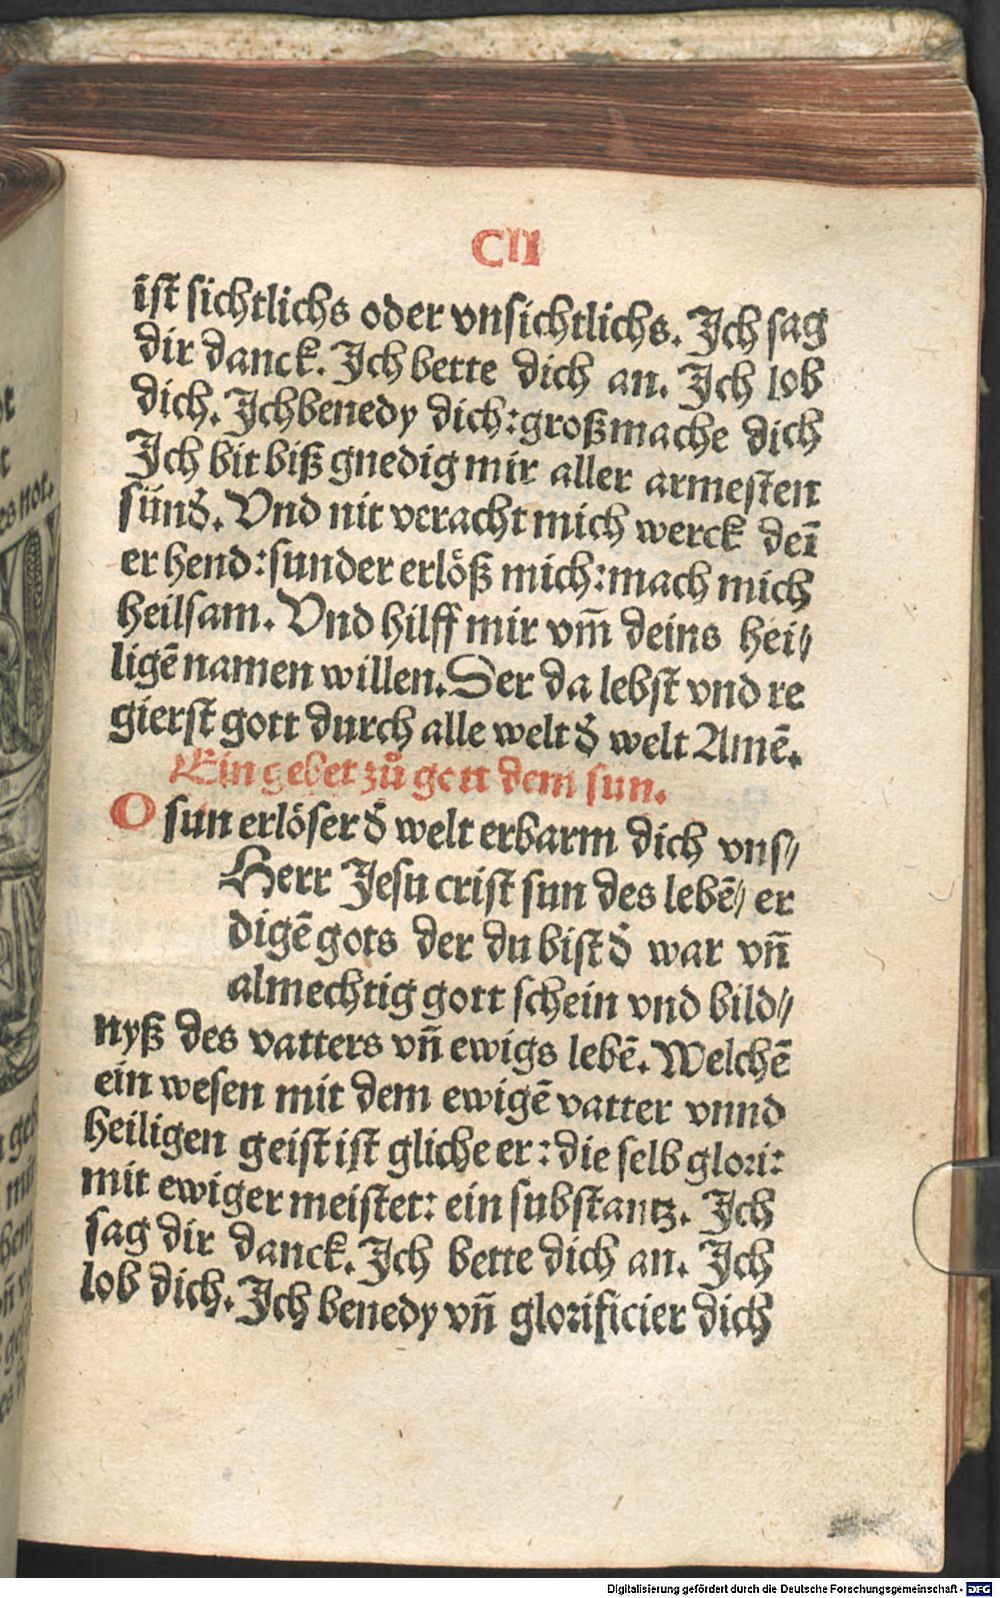 CII
īst sichtlichs oder vnsichtlichs. Ich sag
dir danck. Ich bette dich an. Ich lob
dich. Ich benedy dich: großmache dich
Ich bit biß gnedig mir aller armesten
sünd̕. Vnd nit veracht mich werck deī
er hend: sunder erlöß mich: mach mich
heilsam. Vnd hilff mir vm̄ deins hei⸗
ligē namen willen. Der da lebst vnd re
gierst gott durch alle welt d̕ welt Amē.
Ein gebet zů gott dem sun.
O sun erlöser d̕ welt erbarm dich vns⸗
Herr Jesu crist sun des lebē⸗ er
digē gots der du bist d̕ war vn̄
almechtig gott schein vnd bild⸗
nyß des vatters vn̄ ewigs lebē. Welchē
ein wesen mit dem ewigē vatter vnnd
heiligen geist ist gliche er: die selb glori:
mit ewiger meistet: ein substantz. Ich
sag dir danck. Ich bette dich an. Ich
lob dich. Ich benedy vn̄ glorificier dich
es not.
Digitalisierung gefördert durch die Deutsche Forschungsgemeinschaft - DFG